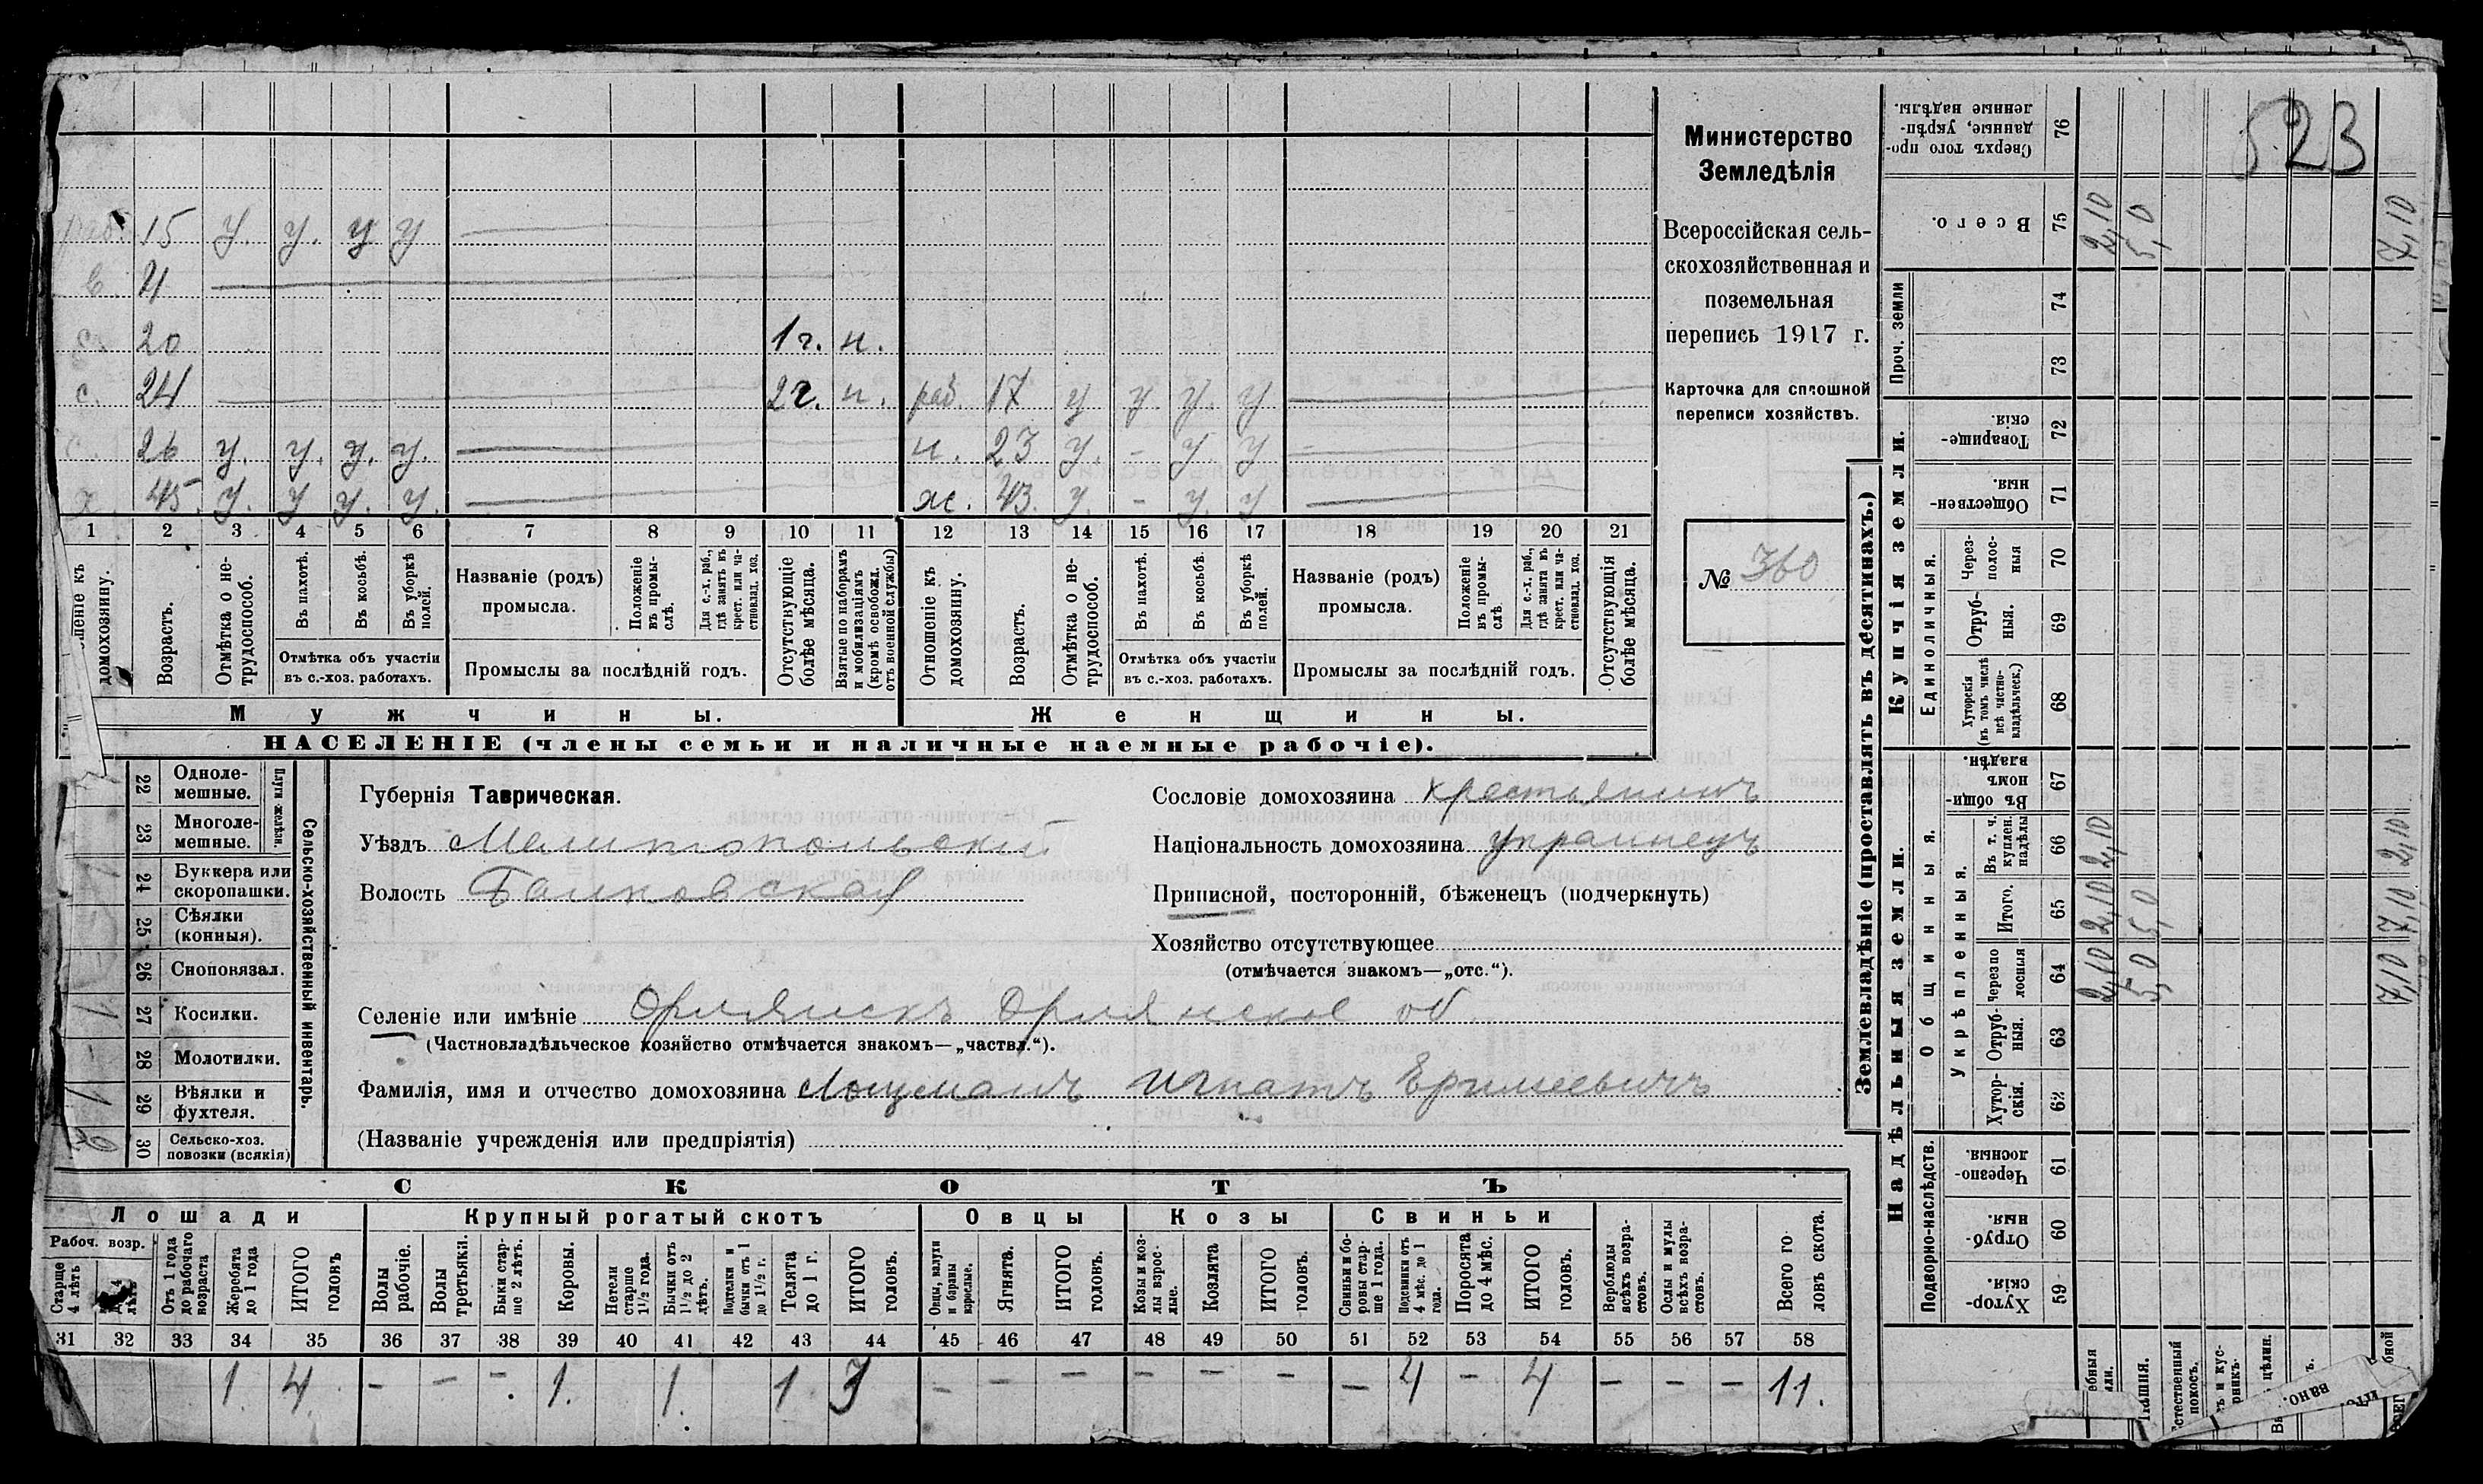 523
Министерство
Земледѣлія
Всероссійская сель-
скохозяйственная и
поземельная
перепись 1917 г.
Карточка для сплошной
переписи хозяйствъ.
№ 360
раб. 15 у. у. у у
в 4
20 1 г. н.
с. 24 2 г. н. раб. 17 у у. у. у
с. 26 у. у. у. у. н. 23 у. - у. у
х. 45 у. у у. у. ж. 43 у. - у. у
1 2 3 4 5 6 7 8 9 10 11 12 13 14 15 16 17 18 19 20 21
домохозяину.
Возрастъ.
Отмѣтка о не-
трудоспособ.
Въ пахотѣ.
Въ косьбѣ.
Въ уборкѣ
полей.
Отмѣтка объ участіи
въ с.-хоз. работахъ.
Названіе (родъ)
промысла.
Положеніе
въ промы-
слѣ.
Для с.-х. раб.,
гдѣ занятъ въ
крест. или ча-
стновлад. хоз.
Промыслы за послѣдній годъ.
Отсутствующіе
болѣе мѣсяца.
Взятые по наборамъ
и мобилизаціямъ
(кромѣ освобожд.
отъ военной службы)
Отношеніе къ
домохозяину.
Возрастъ.
Отмѣтка о не-
трудоспособ.
Въ пахотѣ.
Въ косьбѣ.
Въ уборкѣ
полей.
Отмѣтка объ участіи
въ с.-хоз. работахъ.
Названіе (родъ)
промысла.
Положеніе
въ промы-
слѣ
Для с.-х. раб.,
гдѣ занята въ
крест. или ча-
стновлад. хоз.
Промыслы за послѣдній годъ.
Отсутствующія
болѣе мѣсяца.
Мужчины.
Женщины.
НАСЕЛЕНІЕ (члены семьи и наличные наемные рабочіе).
Сельско-хозяйственный инвентарь.
Плуги желѣзн.
22 Одноле-
мешные.
23 Многоле-
мешные.
24 Буккера или
скоропашки.
25 Сѣялки
(конныя).
26 Сноповязал.
1 27 Косилки.
28 Молотилки.
1 29 Вѣялки и
фухтеля.
30 Сельско-хоз.
повозки (всякія)
Губернія Таврическая.
Уѣздъ Мелитопольский
Волость Балковская
Сословіе домохозяина крестьянинъ
Національность домохозяина украинецъ
Приписной, посторонній, бѣженецъ (подчеркнуть)
Хозяйство отсутствующее
(отмѣчается знакомъ—„отс.“).
Селеніе или имѣніе Орлянскъ Орлянское об
(Частновладѣльческое хозяйство отмѣчается знакомъ—„частвл.“).
Фамилія, имя и отчество домохозяина Лоцманъ Игнатъ Еримеевичъ
(Названіе учрежденія или предпріятія)
СКОТЪ
Лошади
Крупный рогатый скотъ
Овцы
Козы
Свиньи
Рабоч. возр.
Старше
4 лѣтъ
Отъ 1 года
до рабочаго
возраста
Жеребята
до 1 года
ИТОГО
головъ
Волы
рабочіе.
Волы
третьяки.
Быки стар-
ше 2 лѣтъ.
Коровы.
Нетели
старше
1½ года.
Бычки отъ
1½ до 2
лѣтъ.
Подтелки и
бычки отъ 1
до 1½ г.
Телята
до 1 г.
ИТОГО
головъ.
Овцы, валухи
и бараны
взрослые.
Ягнята.
ИТОГО
головъ.
Козы и коз-
лы взрос-
лые.
Козлята
ИТОГО
головъ.
Свиньи и бо-
ровы стар-
ше 1 года.
Подсвинки отъ
4 мѣс. до 1
года.
Поросята
до 4 мѣс.
ИТОГО
головъ.
Верблюды
всѣхъ возра-
стовъ.
Ослы и мулы
всѣхъ возра-
стовъ.
Всего го-
ловъ скота.
31 32 33 34 35 36 37 38 39 40 41 42 43 44 45 46 47 48 49 50 51 52 53 54 55 56 57 58
1. 4. - - - 1. 1. 1 3 - - - - - - - 4 - 4 - - - 11.
Землевладѣніе (проставлять въ десятинахъ.)
Надѣльныя земли.
Купчія земли.
Проч. земли
Подворно-наслѣдств.
Общинныя.
Укрѣпленныя.
Единоличныя.
Сверхъ того про-
данные, укрѣп-
ленные надѣлы.
76
Всего.
75 2,10 5,0 7,10
74
73
Товарище-
скія
72
Обществен-
ныя.
71
Через-
полос-
ныя
70
Отруб-
ныя.
69
Хуторскія
(въ томъ числѣ
всѣ частно-
владѣльческ.)
68
Въ общин-
номъ
владѣн.
67
Въ т. ч.
куплен.
надѣлы
66 2,10 2,10
Итого.
65 2,10 5,0 7,10
Черезпо
лосныя
64 2,10 5,0 7,10
Отруб-
ныя.
63
Хутор-
скія.
62
Черезпо-
лосныя.
61
Отруб-
ныя.
60
Хутор-
скія.
59